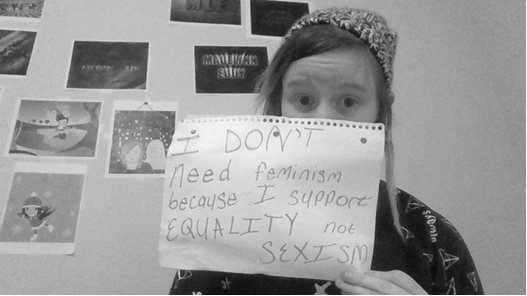 MADELYNN
ELLIY
I DON'T
need feminism
because I support
EQUALITY not
SEXISM